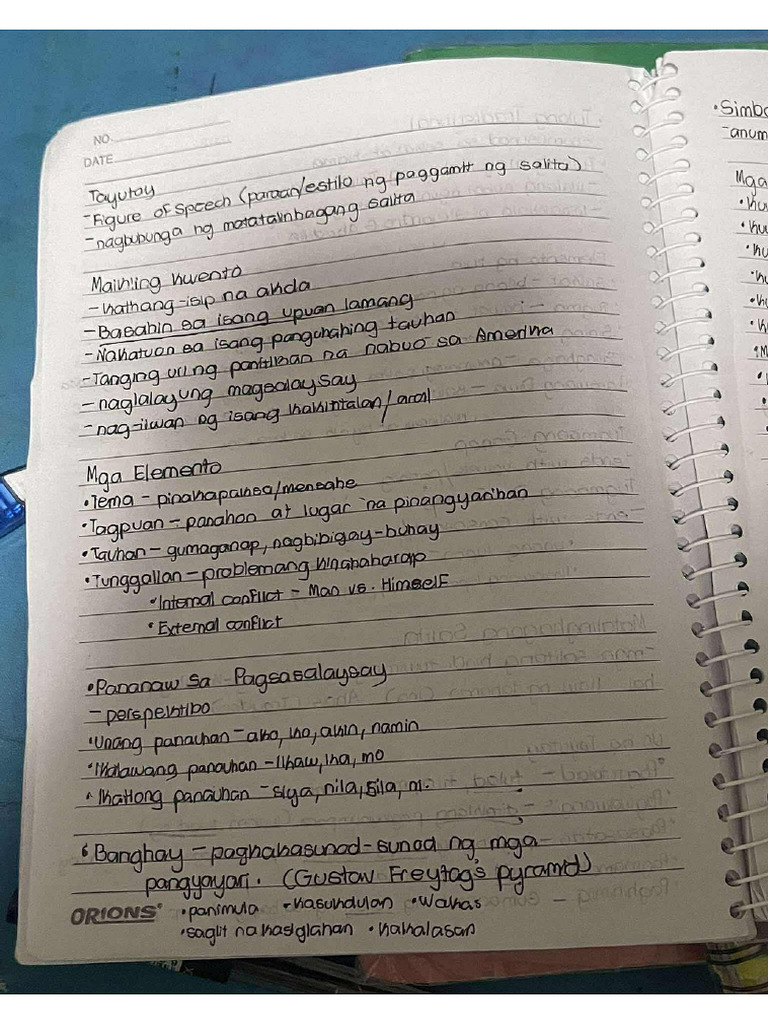 NO.
DATE
Tayutay
-Figure of Speech (paraan/estilo ng paggamit ng salita)
-nagbubunga ng matatalinhagang salita
Maikling kwento
-kathang-isip na akda
-Babasahin sa isang upuan lamang
-Nakatuon sa isang pangunahing tauhan
-Tanging uri ng panitikan na nabuo sa Amerika
-naglalayung magsalaysay
-nag-iiwan ng isang kakintalan/aral
Mga Elemento
•Tema - pinakapaksa/mensahe
•Tagpuan - panahon at lugar na pinangyarihan
•Tauhan - gumaganap, nagbibigay-buhay
•Tunggalian - problemang kinakaharap
•Internal conflict - Man vs. Himself
•External conflict
•Pananaw sa Pagsasalaysay
-perspektibo
•Unang panauhan - ako, ko, akin, namin
•Ikalawang panauhan - Ikaw, ka, mo
•Ikatlong panauhan - siya, nila, sila,
•Banghay - pagkakasunod-sunod ng mga
pangyayari. (Gustav Freytag's pyramid)
•panimula •kasukdulan •Wakas
•saglit na kasiglahan •kakalasan
ORIONS
•Simbo
-anum
Mga